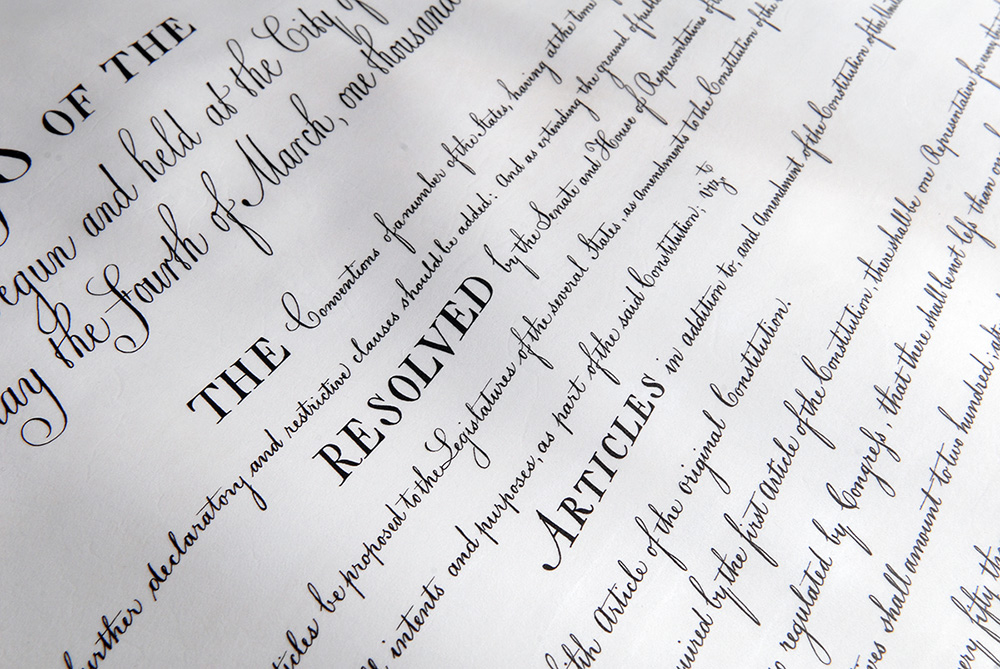 OF THE
egun and held at the City
day the Fourth of March, one thousand
THE Conventions of a number of the States, having at the time
further declaratory and restrictive clauses should be added: And as extending the ground of
RESOLVED by the Senate and House of Representatives of
ticles be proposed to the Legislatures of the several States, as amendments to the Constitution of the
intents and purposes, as part of the said Constitution; vizt
ARTICLES in addition to, and Amendment of the Constitution of the
fifth Article of the original Constitution.
uired by the first Article of the Constitution, there shall be one Representative for
regulated by Congreſs, that there shall be not leſs than
ves shall amount to two hundred;
ry fifty